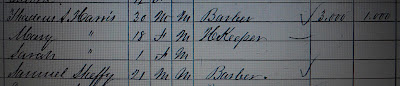 Thadeus S. Harris 30 M M Barber 3,000 1,000
Mary " 18 F M H Keeper
Sarah " 1 F M
Samuel Skeffy 21 M M Barber.